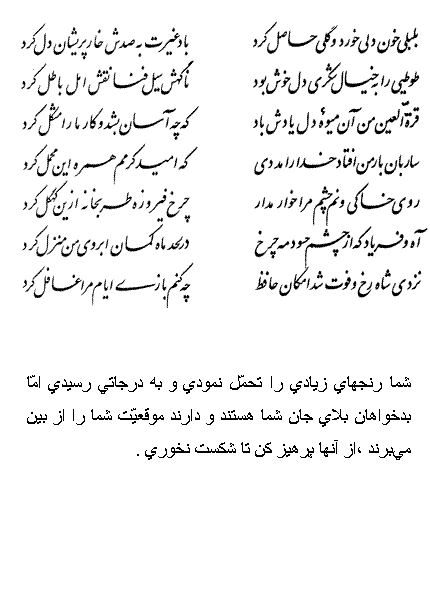 بلبلی خون دلی خورد و گلی حاصل کرد باد غیرت به صدش خار پریشان دل کرد
طوطیی را به خیال شکری دل خوش بود ناگهش سیل فنا نقش امل باطل کرد
قرة العین من آن میوهٔ دل یادش باد که چه آسان بشد و کار مرا مشکل کرد
ساربان بار من افتاد خدا را مددی که امید کرمم همره این محمل کرد
روی خاکی و نم چشم مرا خوار مدار چرخ فیروزه طربخانه ازین کهگل کرد
آه و فریاد که از چشم حسود مه چرخ در لحد ماه کمان ابروی من منزل کرد
نزدی شاه رخ و فوت شد امکان حافظ چه کنم بازی ایام مرا غافل کرد
شما رنجهاي زيادي را تحمّل نمودي و به درجاتي رسيدي امّا
بدخواهان بلاي جان شما هستند و دارند موقعيّت شما را از بين
مي‌برند ،از آنها پرهيز كن تا شكست نخوري .